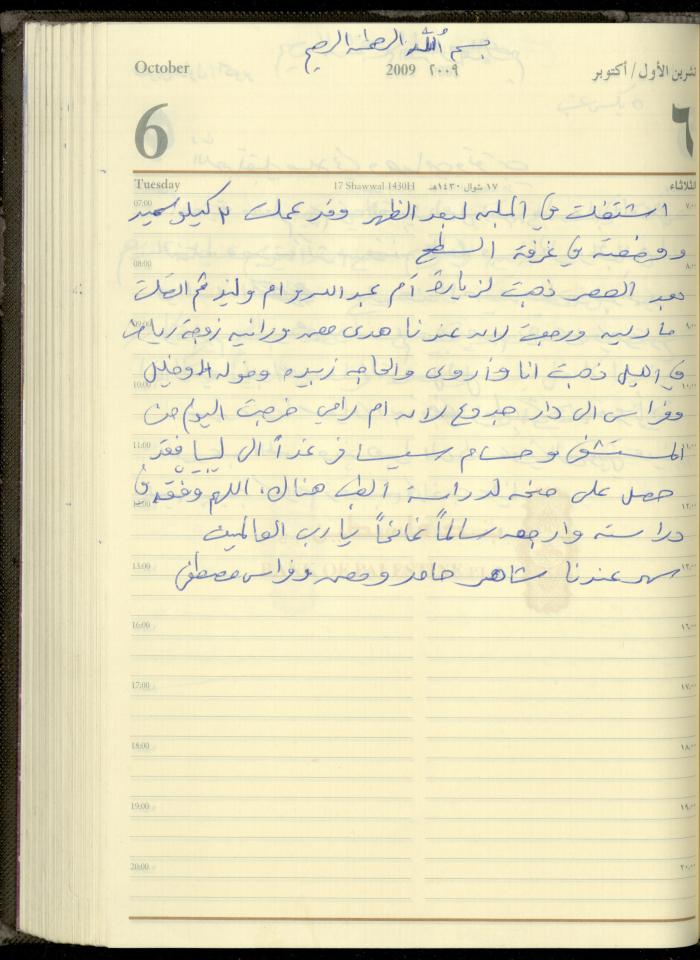 بسم الله الرحمن الرحيم
October
2009 ٢٠٠٩
تشرين الأول / أكتوبر
6
٦
Tuesday
17 Shawwal 1430H ١٧ شوال ١٤٣٠هـ
الثلاثاء
07:00 اشتغلت في الملبن لبعد الظهر وقد عملت ٣ كيلو سميد ٧,٠٠
ووضعته في غرفة السطح
08:00 ٨,٠٠
بعد العصر ذهبت لزيارة أم عبد الله وام وليد ثم اتصلت
ورجعت لانه عندنا هدى ورانيه زوجة
في الليل ذهبت انا وأروى والحاجه زبيده وخوله
10:00 ١٠,٠٠
وفراس الى دار جدوع لانه ام رامي خرجت اليوم من
11:00 المستشفى وحسام سيسافر غداً الى ليبيا فقد
حصل على منحه لدراسة الطب هناك، اللهم وفقه في
١٢,٠٠
دراسته وارجعه سالماً غانماً يا رب العالمين
13:00 ١٣,٠٠
سهر عندنا شاهر حامد وفراس مصطفى
16:00 ١٦,٠٠
17:00 ١٧,٠٠
18:00 ١٨,٠٠
19:00 ١٩,٠٠
20:00 ٢٠,٠٠